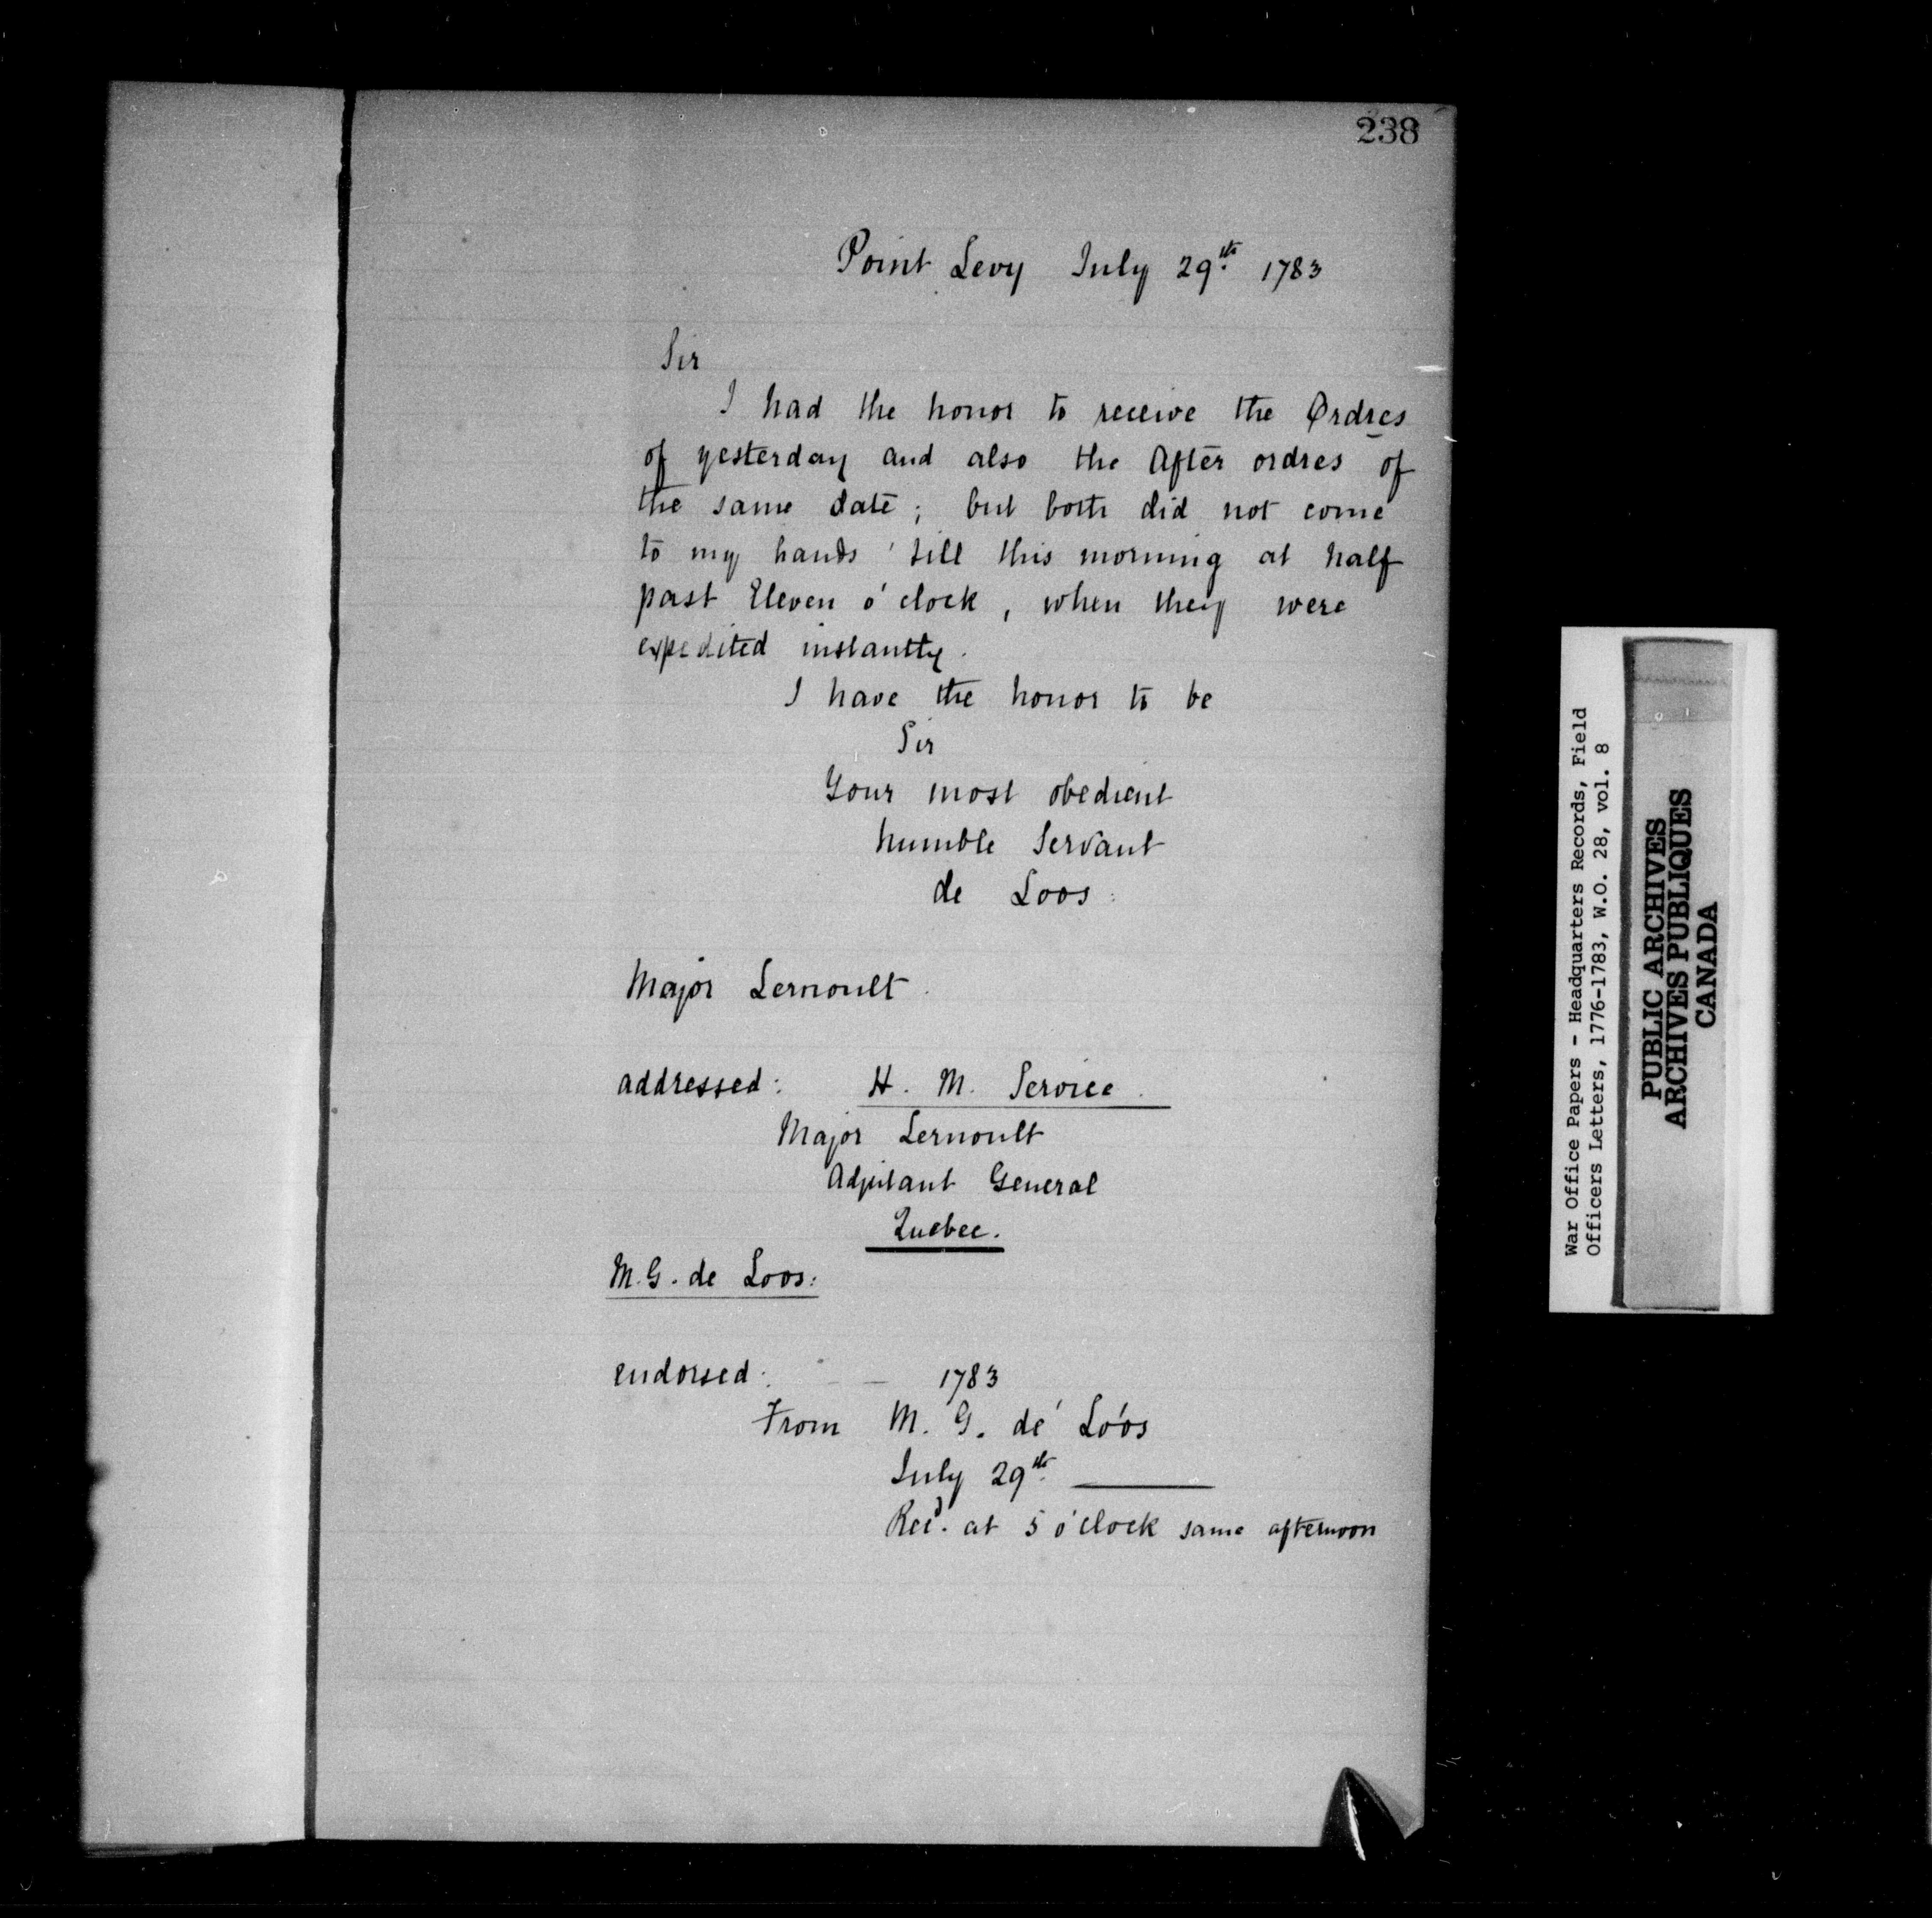 238
Point Levy July 29th. 1783
Sir
I had the honor to receive the Ordres
of yesterday and also the After ordres of
the same date; but both did not come
to my hands 'till this morning at half
past Eleven o'clock, when they were
expedited instantly.
I have the honor to be
Sir
Your most obedient
humble Servant
de Loos:
Major Lernoult.
addressed: H. M. Service.
Major Lernoult
Adjutant General
Quebec.
M. G. de Loos:
endorsed: — 1783
From M. G. dé Lóos
July 29th. —
Recd. at 5 o'clock same afternoon
War Office Papers - Headquarters Records, Field
Officers Letters, 1776-1783, W.O. 28, vol. 8
PUBLIC ARCHIVES
ARCHIVES PUBLIQUES
CANADA